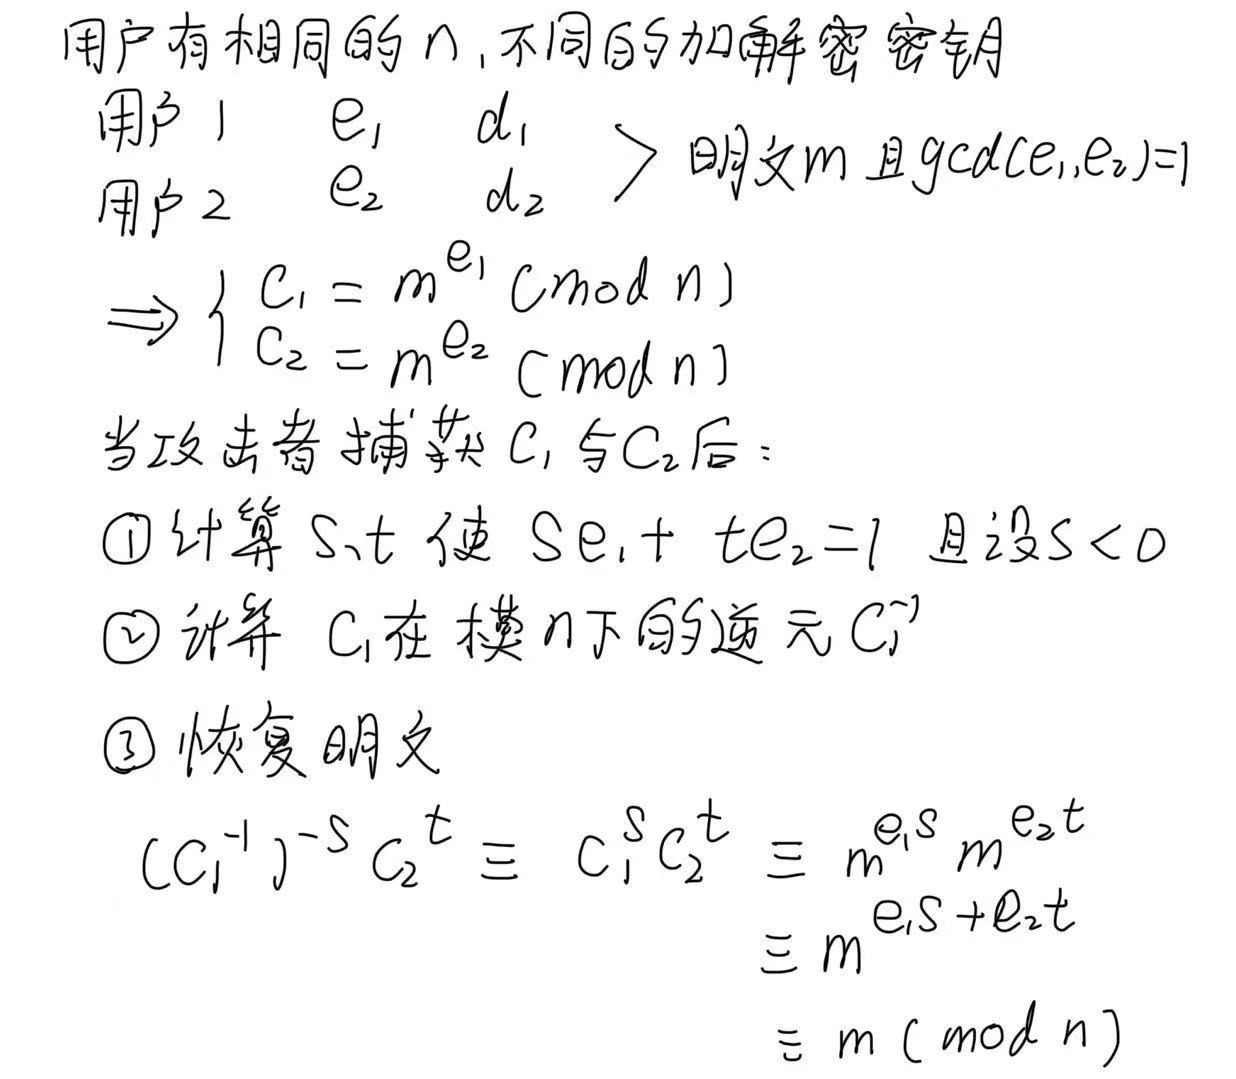 用户有相同的n,不同的加解密密钥
用户1 e₁ d₁
用户2 e₂ d₂ > 明文m且gcd(e₁,e₂)=1
⇒ { C₁ = m^e₁ (mod n)
C₂ = m^e₂ (mod n)
当攻击者捕获C₁与C₂后:
①计算s、t使 se₁+te₂=1 且设s<0
②计算 C₁在模n下的逆元C₁⁻¹
③恢复明文
(C₁⁻¹)^-s C₂^t ≡ C₁^s C₂^t ≡ m^e₁s m^e₂t
≡ m^e₁s+e₂t
≡ m (mod n)